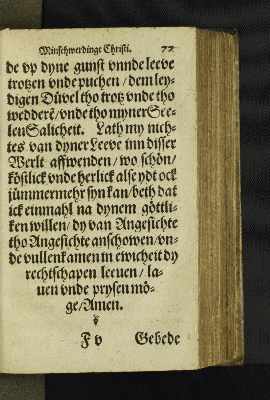 Minschwerdinge Christi. 72
de vp dyne gunst vnnde leeve
trotzen vnde puchen / dem ley-
digen Düvel tho trotz vnde tho
wedderē / vnde tho myner See-
len Salicheit. Lath my nich-
tes van dyner Leeve inn disser
Werlt affwenden / wo schön /
köstlick vnde herlick alse ydt ock
jümmermehr syn kan / beth dat
ick einmahl na dynem göttli-
ken willen / dy van Angesichte
tho Angesichte anschowen / vn-
de vullenkamen in ewicheit dy
rechtschapen leeuen / la-
uen vnde prysen mö-
ge / Amen.
F v Gebede